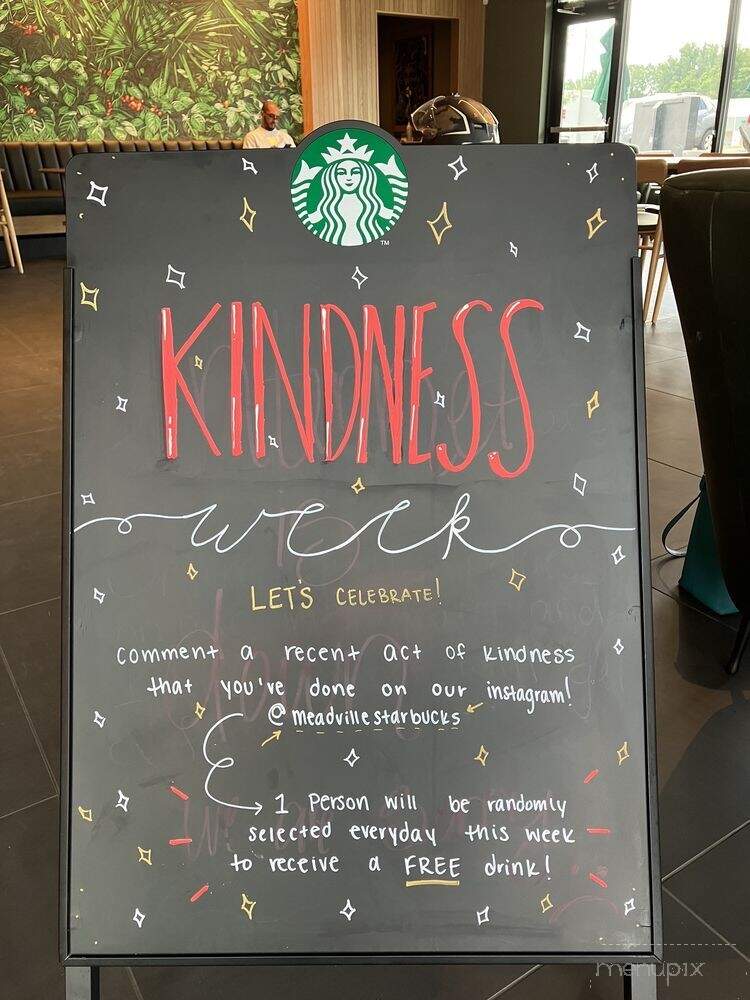 TM
KINDNESS
week
LET'S CELEBRATE!
comment a recent act of kindness
that you've done on our instagram!
@meadvillestarbucks
1 Person will be randomly
selected everyday this week
to receive a FREE drink!
menupix